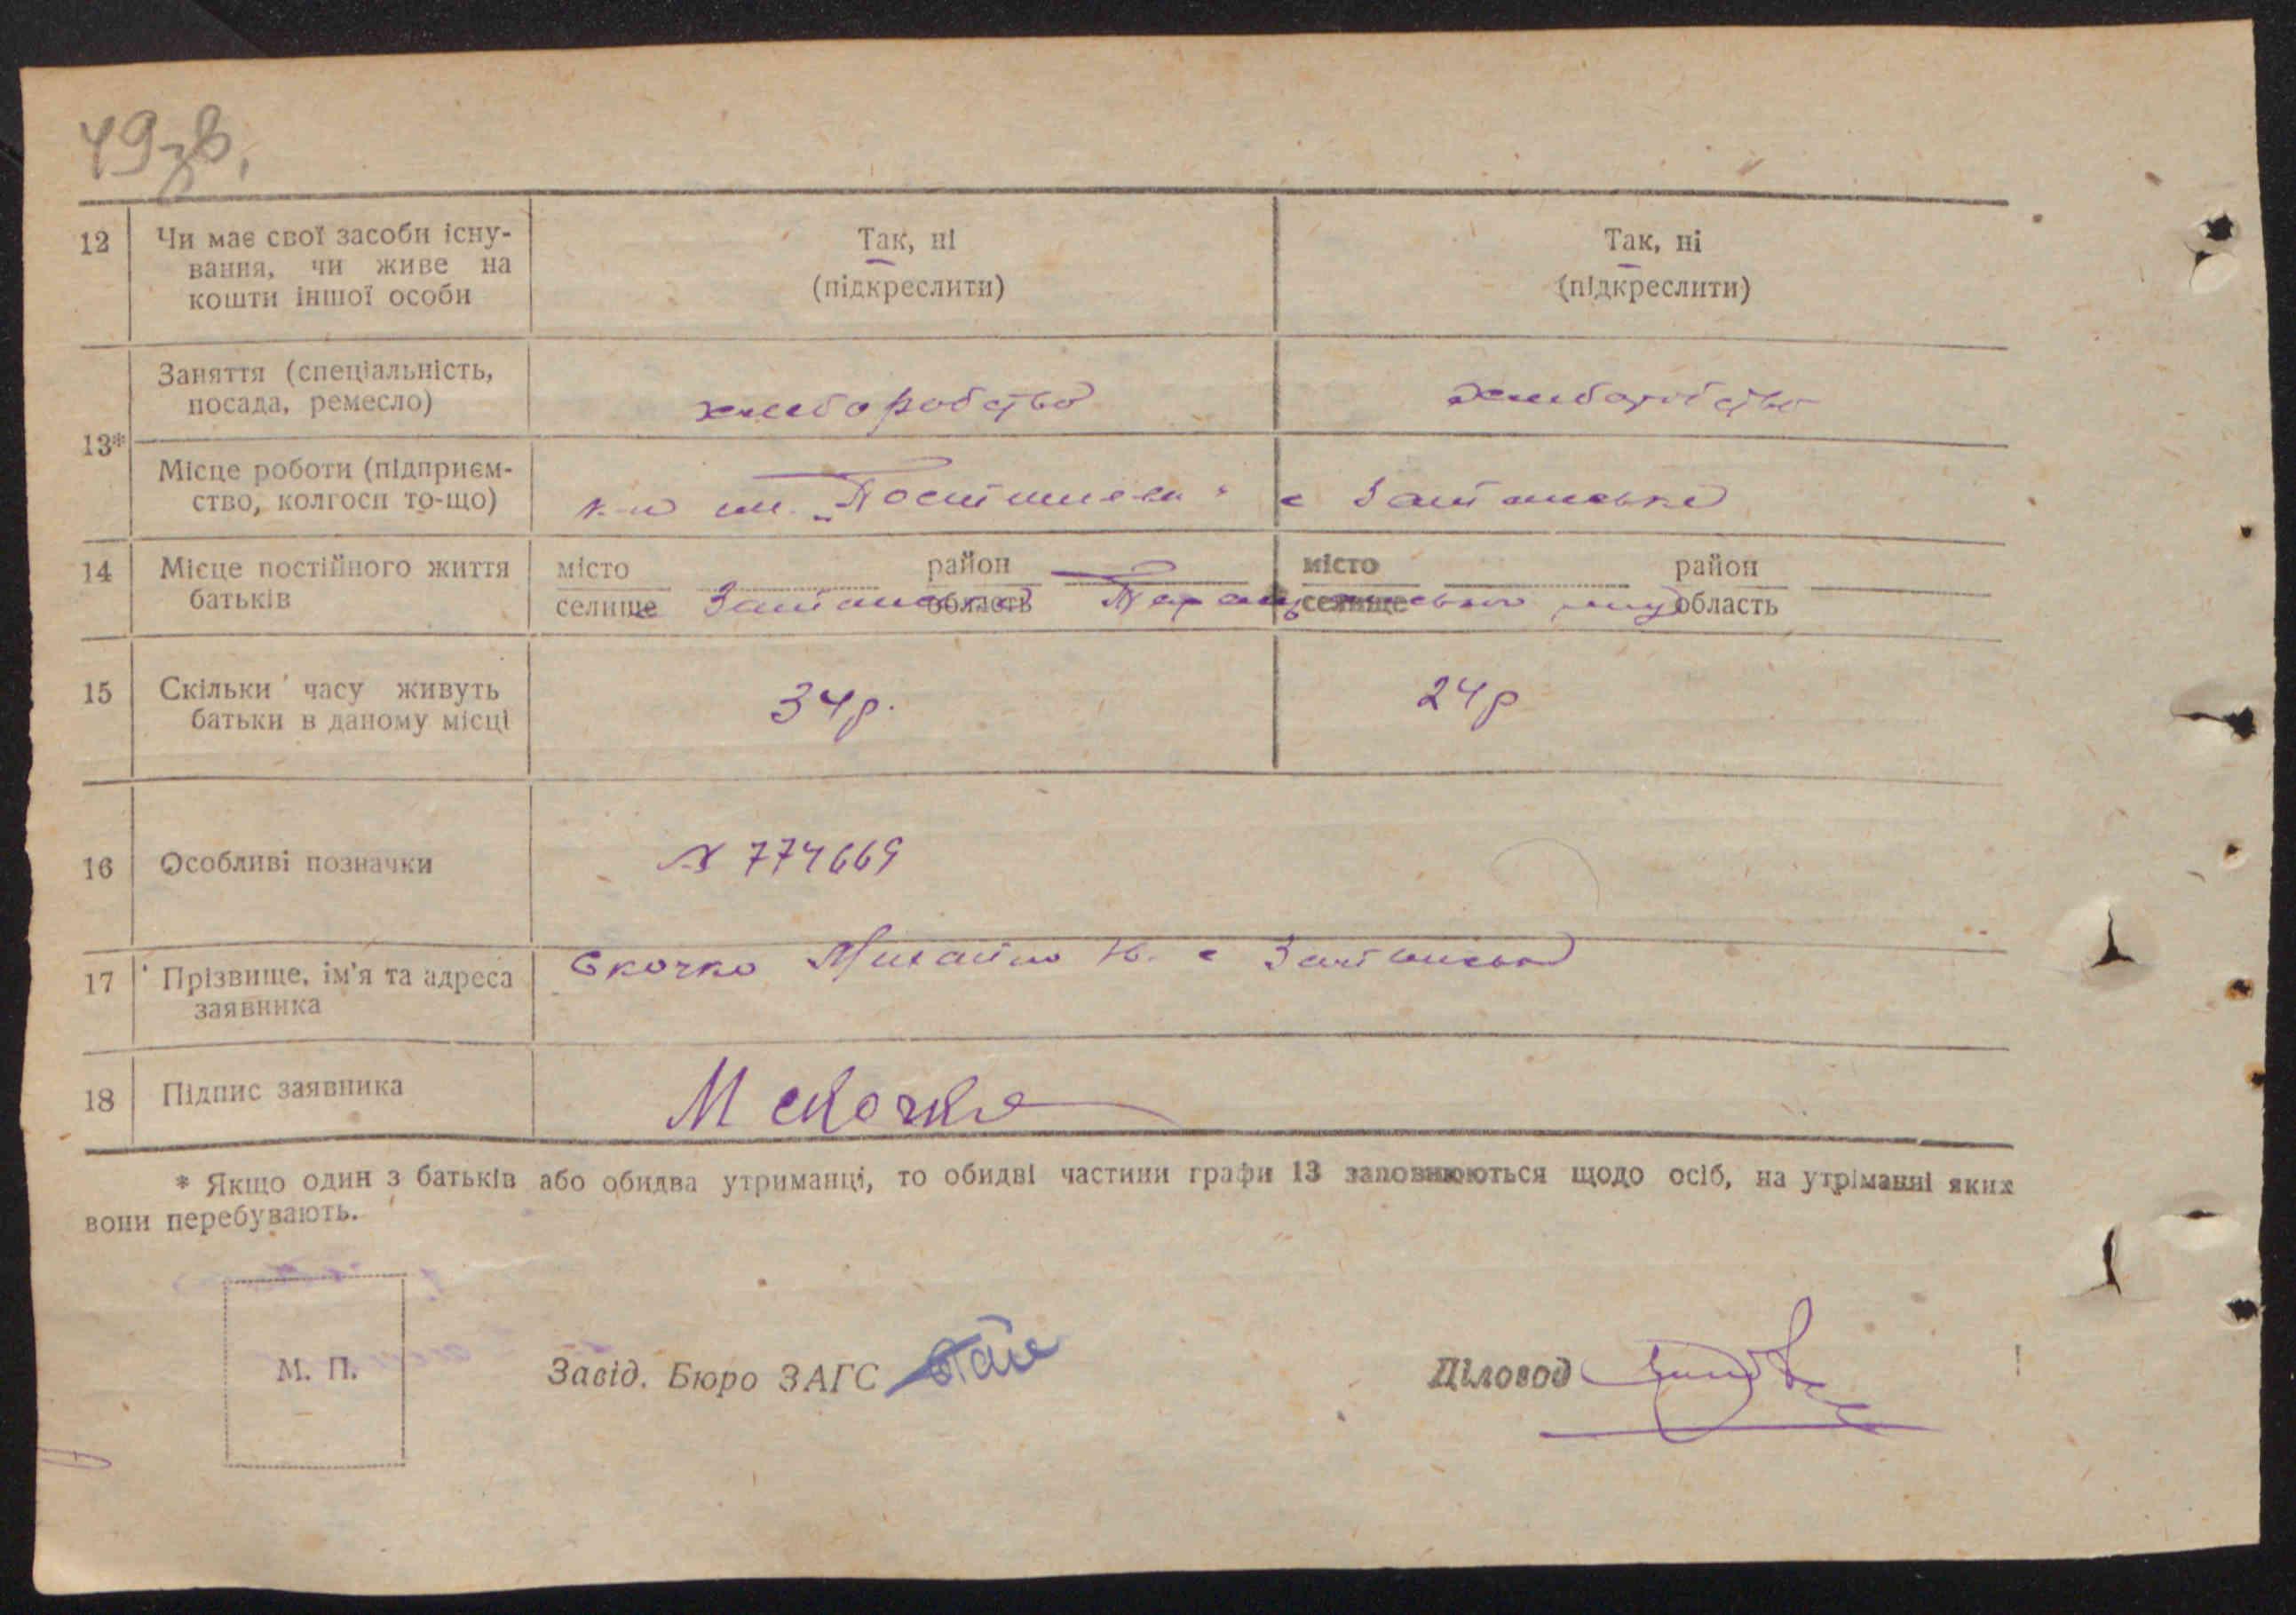 49зв.
12 Чи має свої засоби існу- Так, ні Так, ні
вання, чи живе на (підкреслити) (підкреслити)
кошти іншої особи
Заняття (спеціальність, хліборобство хліборобство
посада, ремесло)
13*
Місце роботи (підприєм- к-п ім. „Постишева“ с
ство, колгосп то-що)
14 Місце постійного життя місто район місто район
батьків селище область селище область
15 Скільки часу живуть 34р. 24р
батьки в даному місці
16 Особливі позначки № 774669
17 Прізвище, ім'я та адреса Скочко Михайло с
заявника
18 Підпис заявника М Скочко
* Якщо один з батьків або обидва утриманці, то обидві частини графи 13 заповнюються щодо осіб, на утріманні яких
вони перебувають.
М. П. Завід. Бюро ЗАГС Діловод